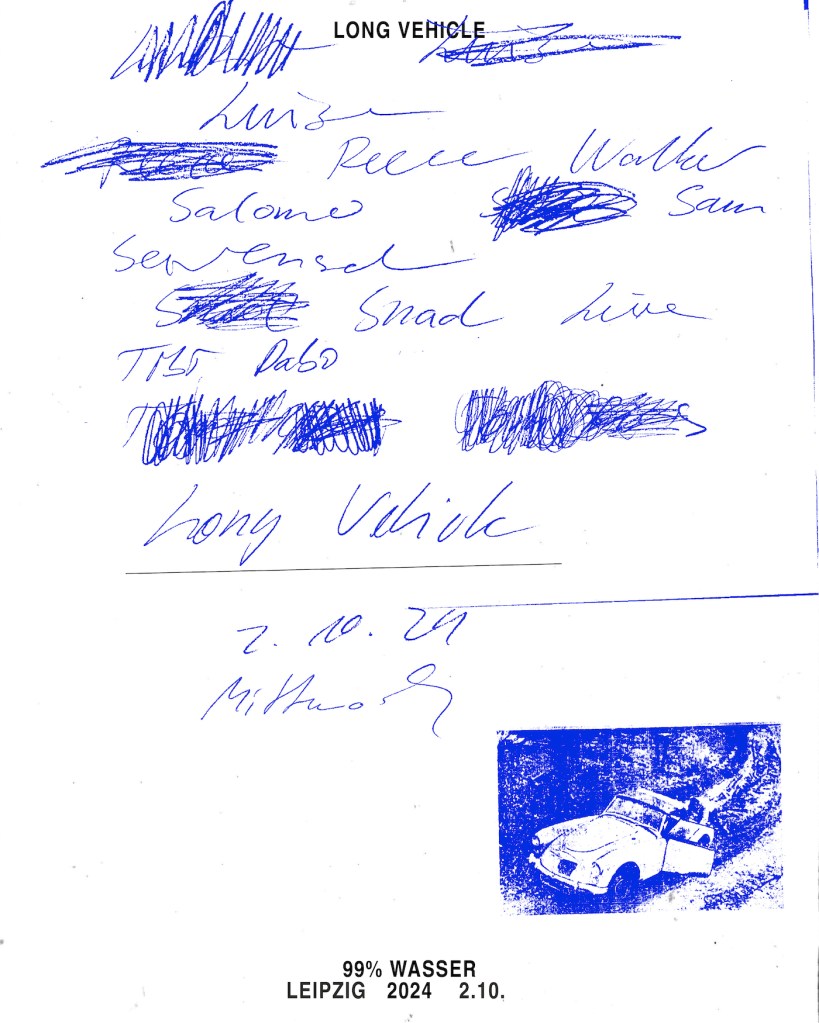 LONG VEHICLE
Luise
Reece Walker
Salomo Sam
Snad Live
TBT Dabo
Long Vehicle
2. 10. 24
Mittwoch
99% WASSER
LEIPZIG 2024 2.10.